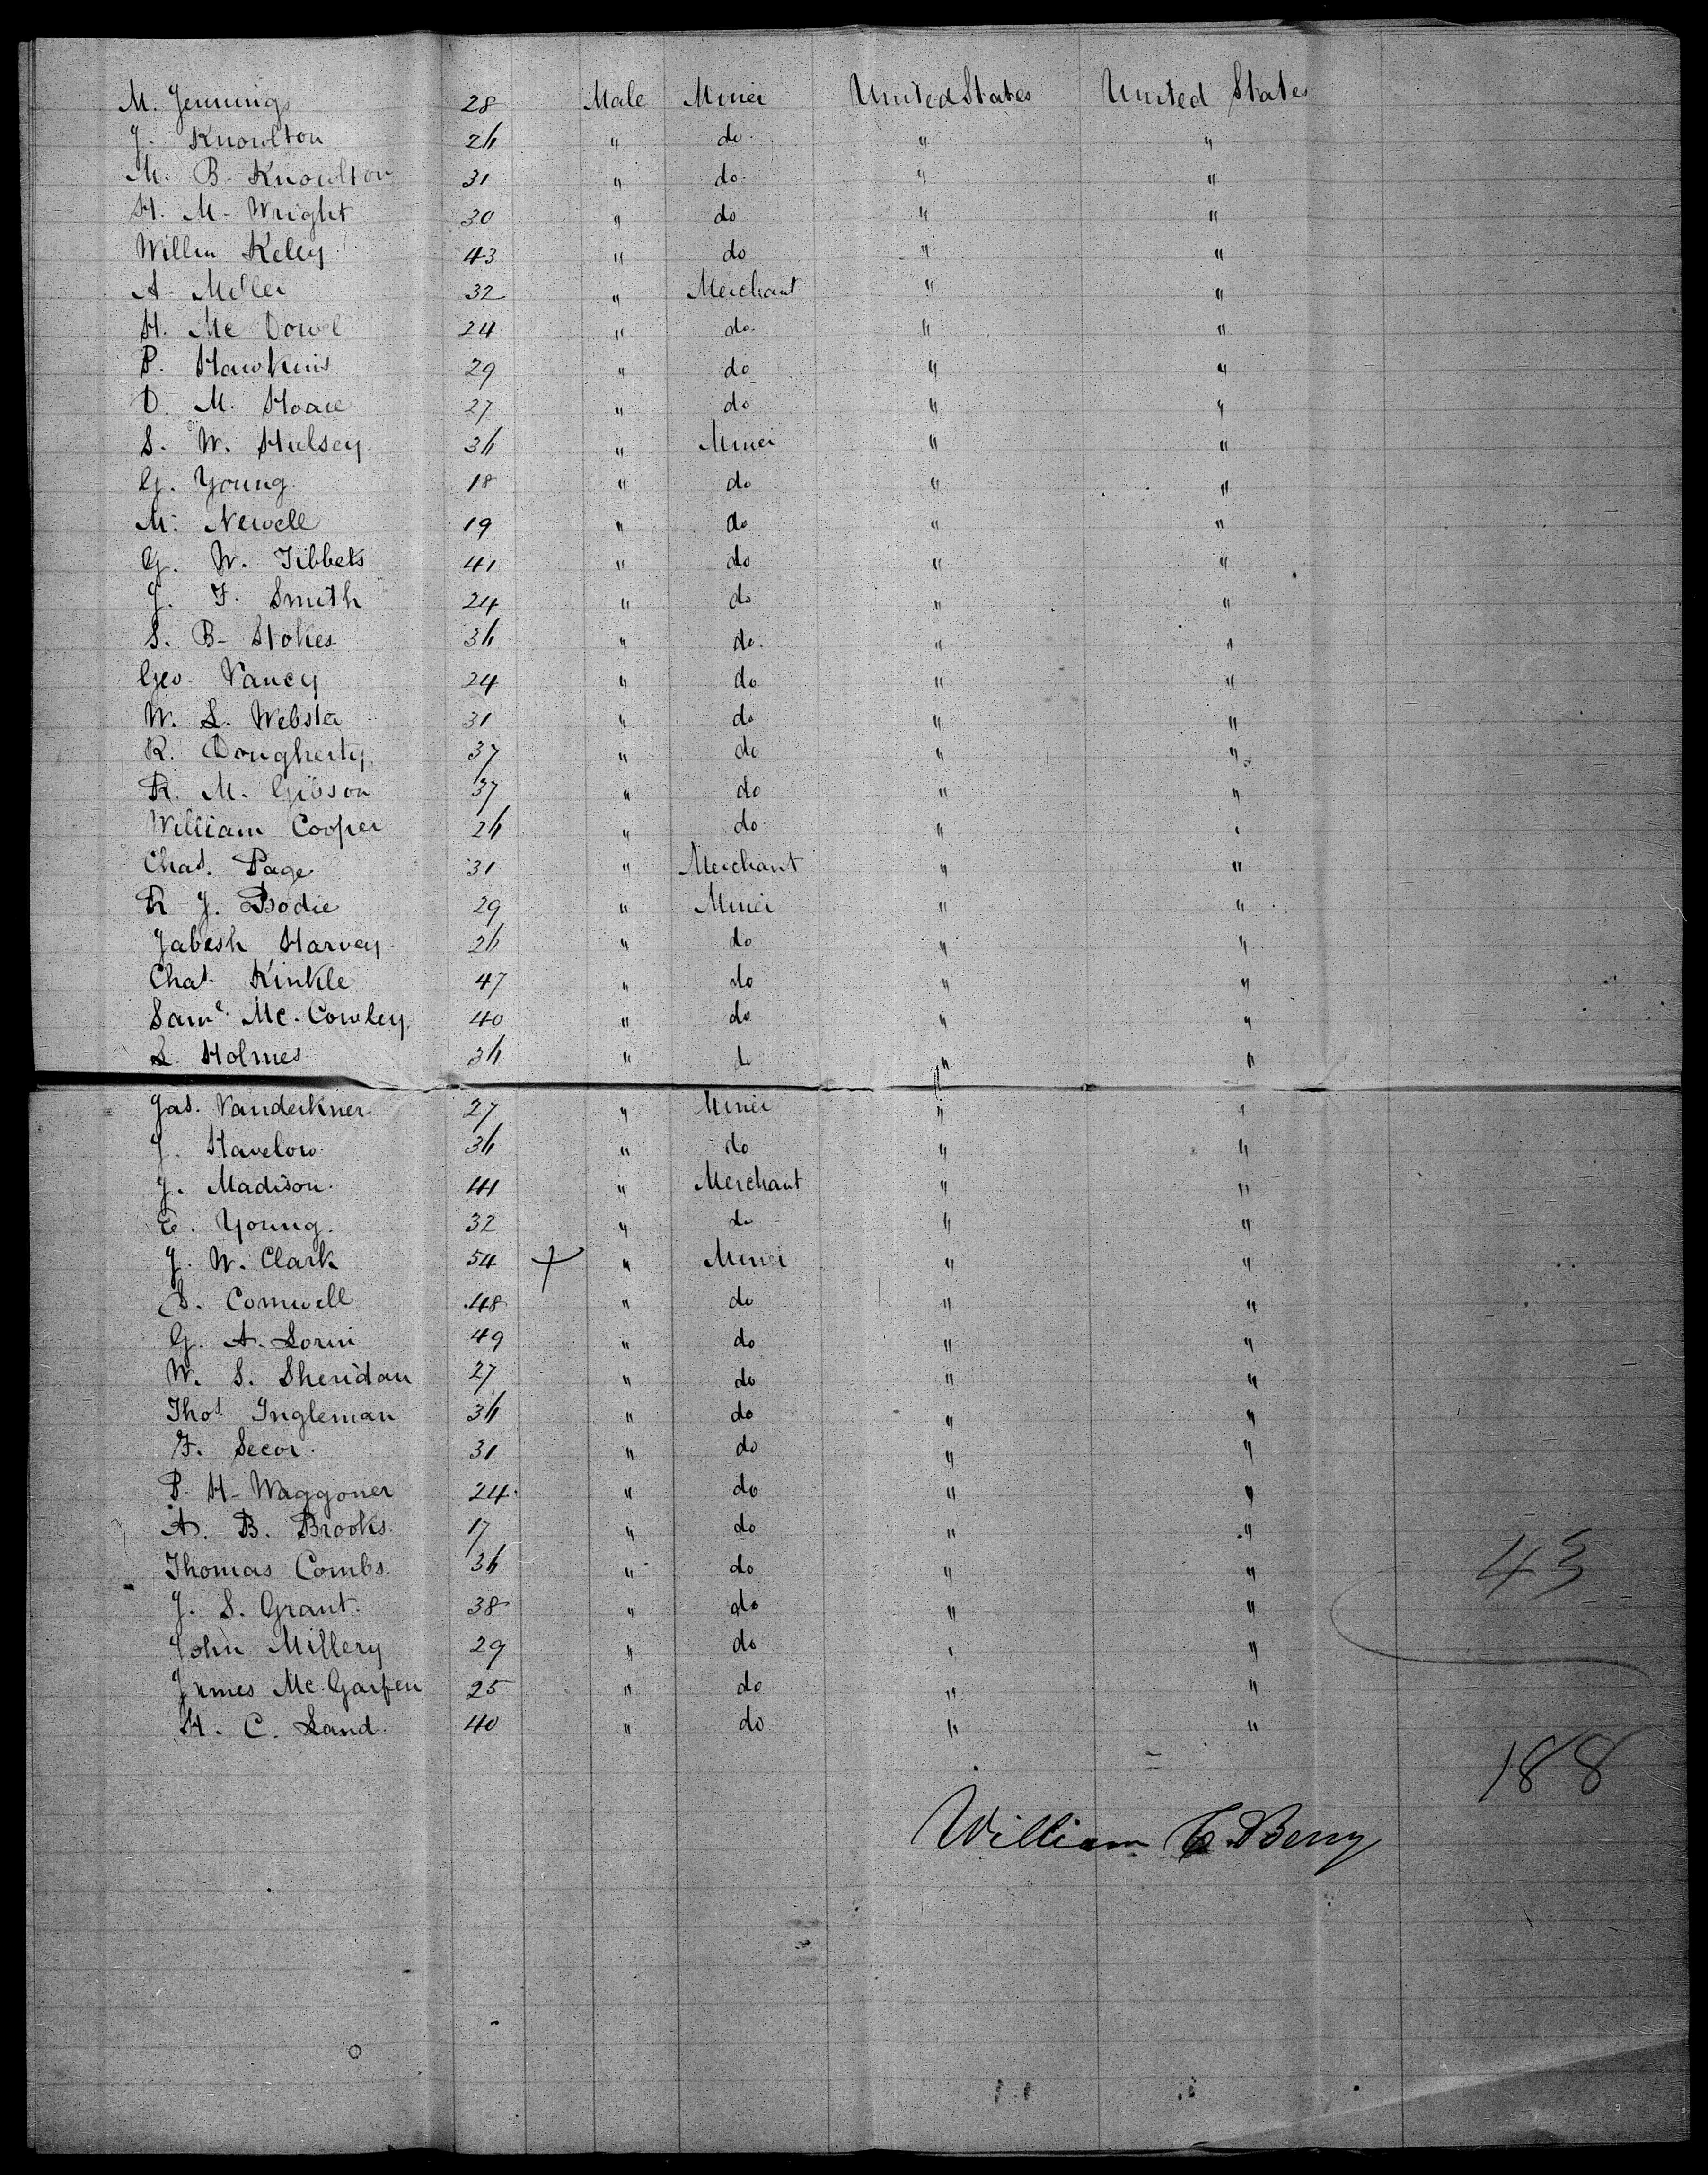 M. Jennings 28 Male Miner United States United States
J. Knowlton 26 " do. " "
M. B. Knowlton 31 " do. " "
H. M. Wright 30 " do " "
Willm Keley 43 " do " "
A. Miller 32 " Merchant " "
H. Mc Dowl 24 " do. " "
P. Hawkins 29 " do " "
D. M. Hoare 27 " do " "
S. W. Hulsey. 36 " Miner " "
G. Young. 18 " do " "
M. Newell 19 " do " "
G. W. Tibbets 41 " do " "
J. F. Smith 24 " do " "
S. B. Stokes 36 " do. " "
Geo. Vancy 24 " do " "
W. L. Webster 31 " do " "
R. Dougherty. 37 " do " "
R. M. Gibson 37 " do " "
William Cooper 26 " do " "
Chas. Page 31 " Merchant " "
R J. Bodie 29 " Miner " "
Jabesh Harvey. 26 " do " "
Chas. Kinkle 47 " do " "
Saml. Mc. Cowley. 40 " do " "
L. Holmes 36 " do " "
Jas. Vanderkner. 27 " Miner " "
J. Havelow. 36 " do " "
J. Madison. 41 " Merchant " "
E. Young. 32 " do " "
J. W. Clark 54 + " Miner " "
S. Cornwell 48 " do " "
G. A. Lorin 49 " do " "
W. S. Sheridan 27 " do " "
Thos. Ingleman 36 " do " "
F. Secor. 31 " do " "
P. H. Waggoner 24. " do " "
A. B. Brooks. 17 " do " "
Thomas Combs. 36 " do " " 43
J. S. Grant. 38 " do " "
John Millery 29 " do " "
James Mc. Garfen 25 " do " "
H. C. Land. 40 " do " "
188
William C. Berry